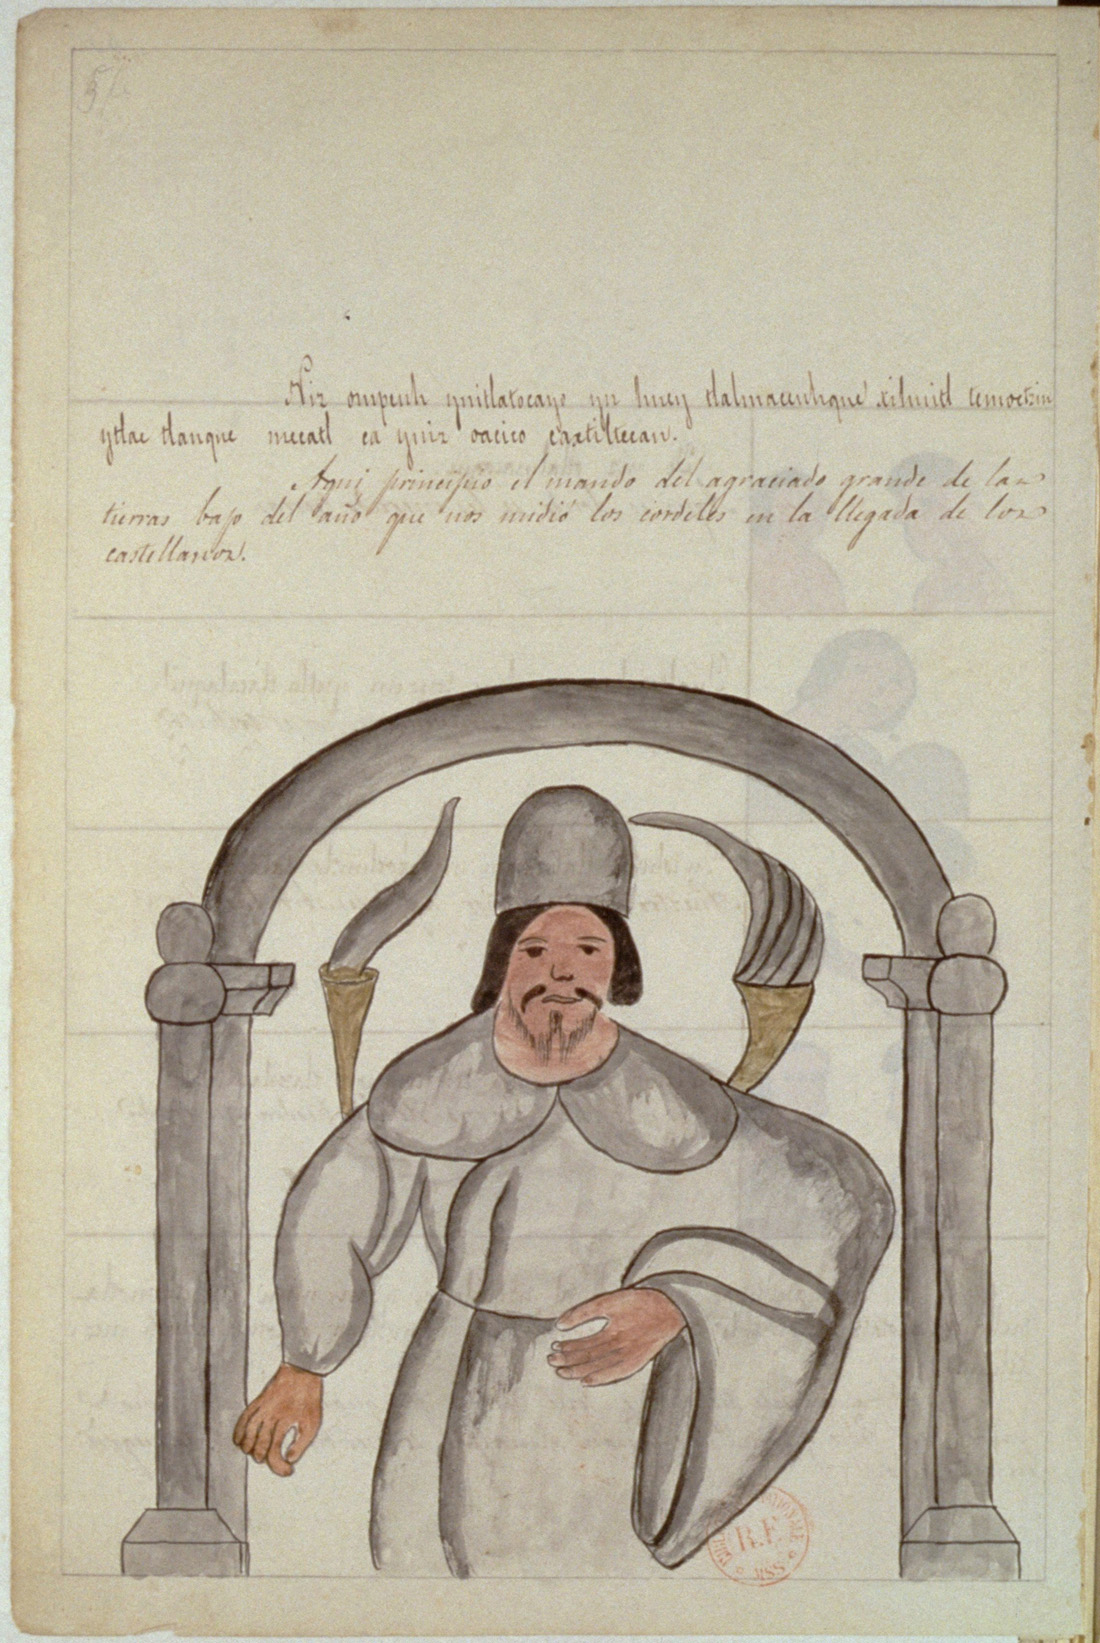 Niz ompeuh ynitlatocayo yn huey tlalmaceuhque xihuitl temoctzin
ytlac tlanque mecatl ca yniz oacico caxtiltecan.
Aqui principio el mando del agraciado grande de las
tierras bajo del año que nos midió los cordeles en la llegada de los
castellanos.
R.F.